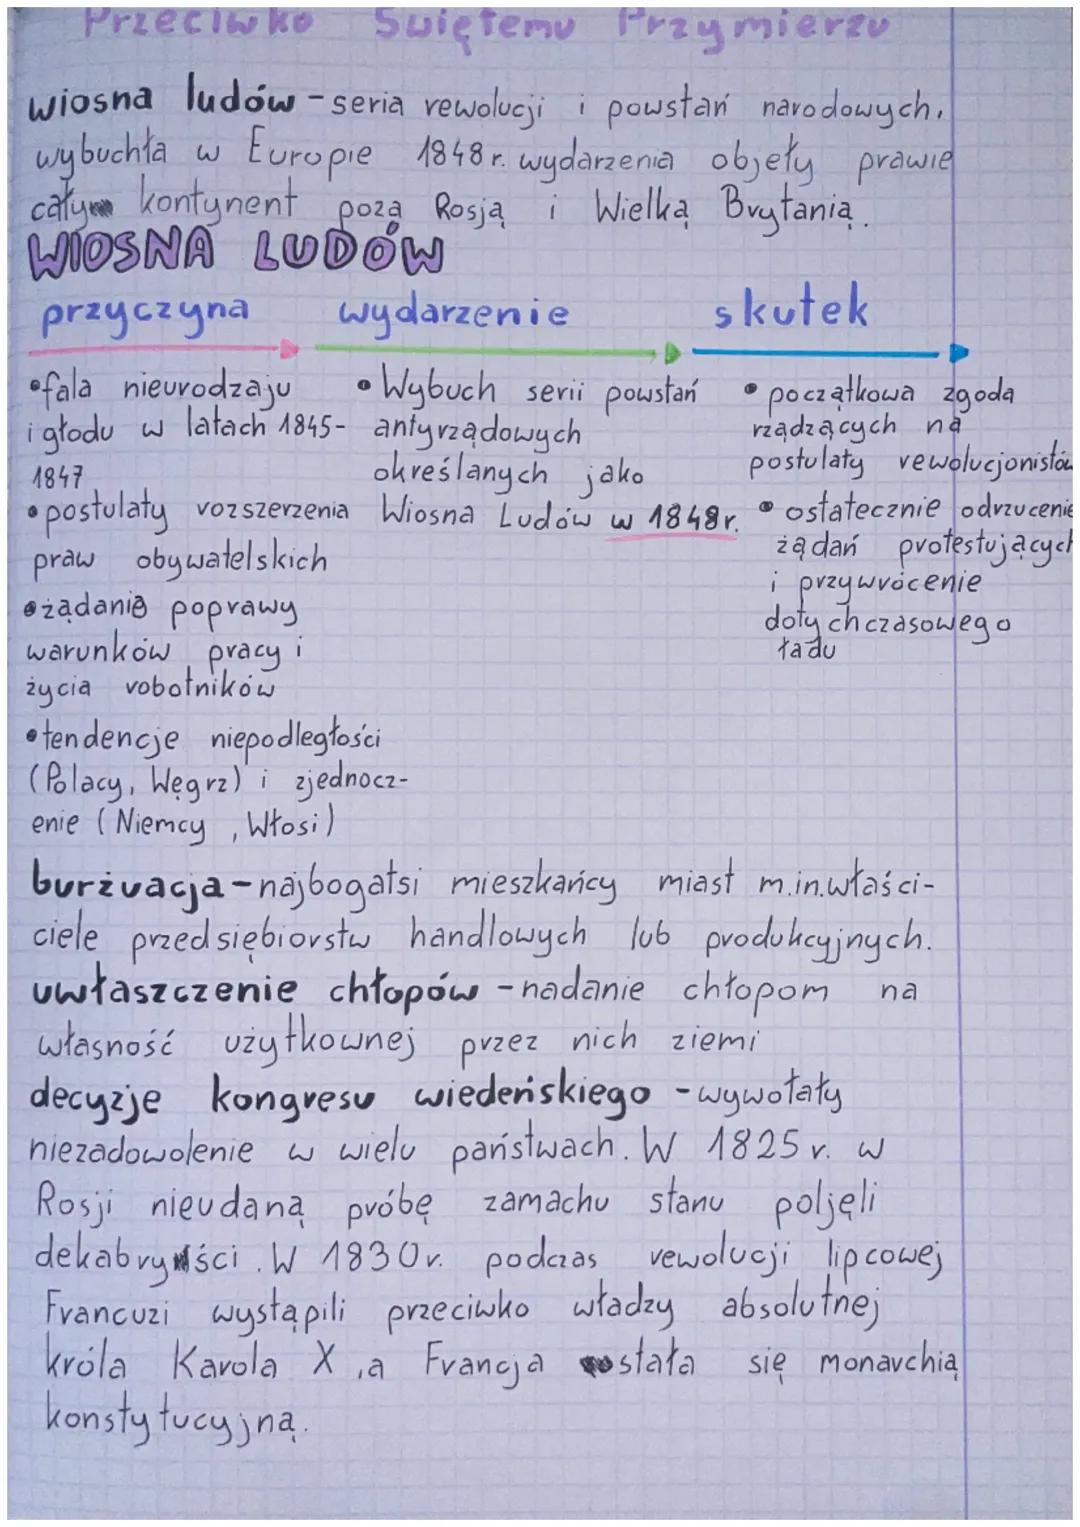 Przeciwko Świętemu Przymierzu
wiosna ludów - seria rewolucji i powstań narodowych,
wybuchła w Europie 1848 r. wydarzenia objęły prawie
cały kontynent pozą Rosją i Wielką Brytanią.
WIOSNA LUDÓW
przyczyna wydarzenie skutek
•fala nieurodzaju
i głodu w latach 1845-
1847
•postulaty rozszerzenia
praw obywatelskich
•żądania poprawy
warunków pracy i
życia robotników
•tendencje niepodległości
(Polacy, Węgrz) i zjednocz-
enie (Niemcy, Włosi)
•Wybuch serii powstań
antyrządowych
określanych jako
Wiosna Ludów w 1848r.
•początkowa zgoda
rządzących na
postulaty rewolucjonistów
•ostatecznie odrzucenie
żądań protestujących
i przywrócenie
dotychczasowego
ładu
burżuacja - najbogatsi mieszkańcy miast m.in.właści-
ciele przedsiębiorstw handlowych lub produkcyjnych.
uwłaszczenie chłopów - nadanie chłopom na
własność użytkownej przez nich ziemi
decyzje kongresu wiedeńskiego - wywołały
niezadowolenie w wielu państwach. W 1825 r. w
Rosji nieudaną próbę zamachu stanu poljęli
dekabryści. W 1830r. podczas rewolucji lipcowej
Francuzi wystąpili przeciwko władzy absolutnej
króla Karola X, a Francja stała się monarchią
konstytucyjną.